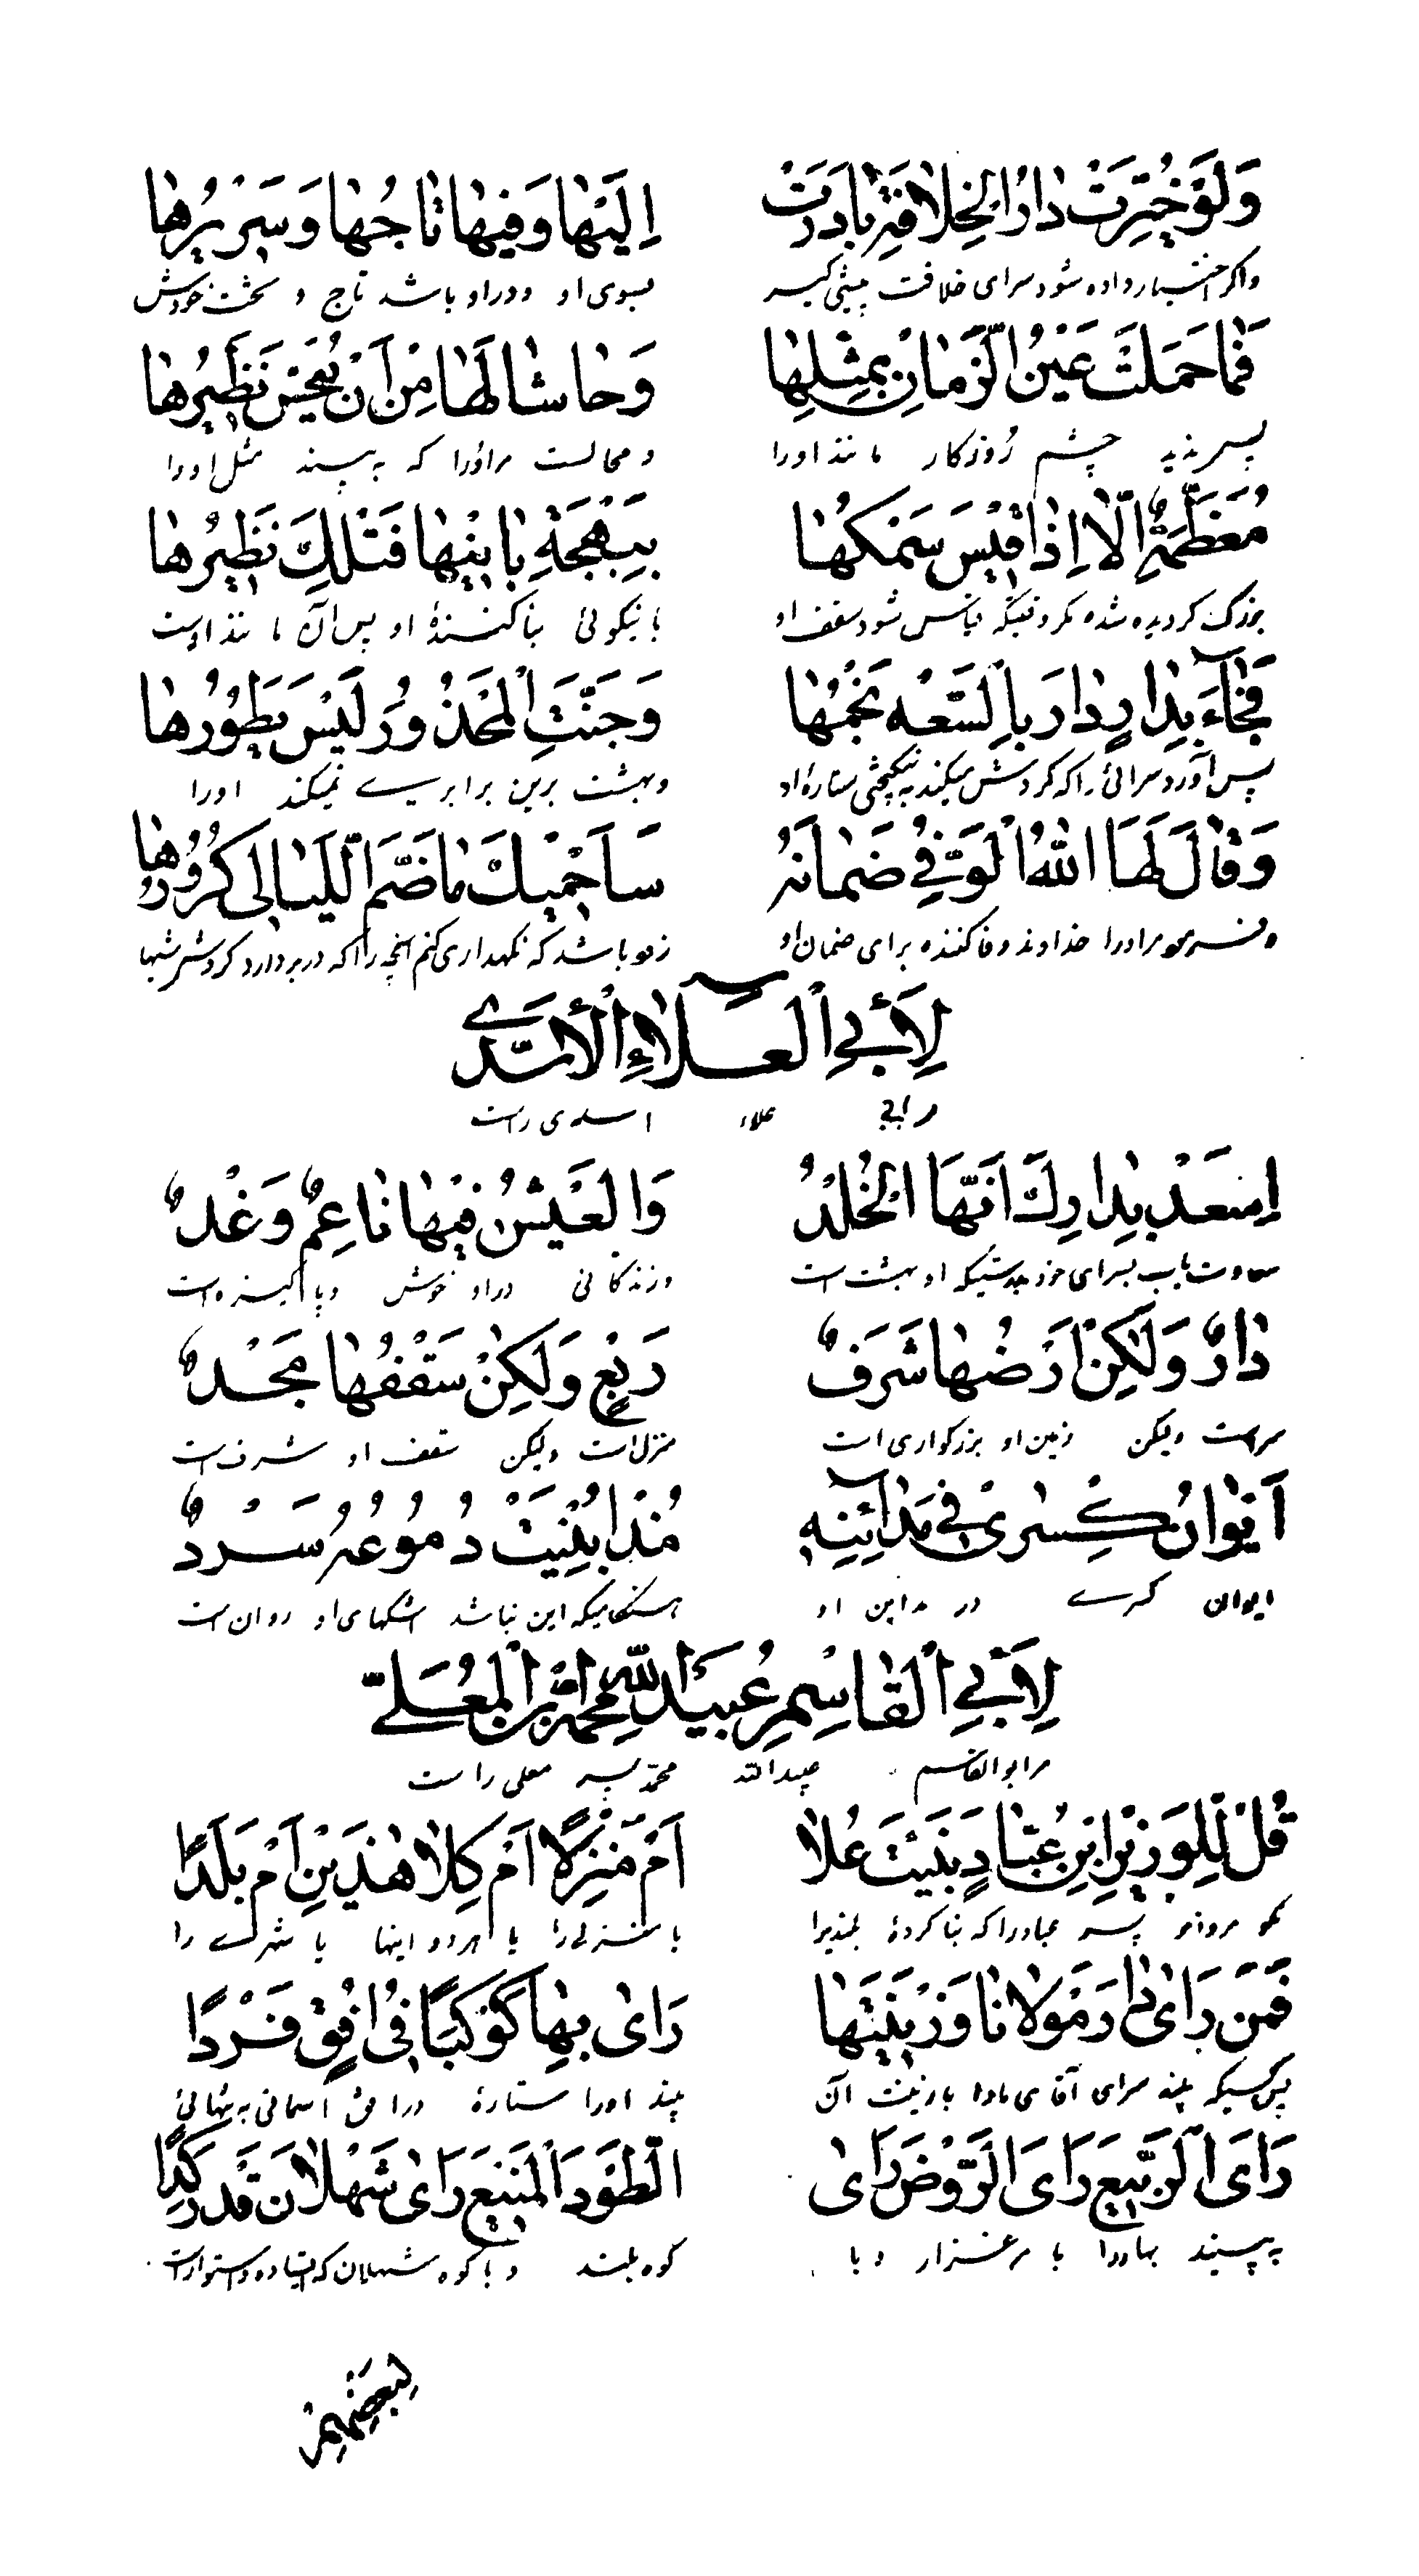 وَلَوْ خُيِّرَتْ دارُ الْخِلافَةِ بادَرَتْ اِلَيْها وَفيها تاجُها وَسَريرُها
واکر اختیار داده شود سرای خلافت پیشی کیرد بسوی او ودر او باشد تاج و تخت خودش
فَما حَمَلَتْ عَيْنُ الزَّمانِ بِمِثْلِها وَحاشا لَها مِنْ اَنْ يُحَيَّسَ نَظيرُها
چشم روزکار مانند اورا و محالست مر اورا که به بیند مثل اورا
مُعَظَّمَةٍ اِلّا اِذا قيسَ سَمْكُها بِبَهْجَةِ بانيها فَتِلْكَ نَظيرُها
بزرک کردیده شده مکر وقتیکه قیاس شود سقف او با نیکوئی بنا کنندۀ او پس آن مانند اوست
فَجاءَ بِدارٍ دارَ بِالسَّعْدِ نَجْمُها وَجَنَّتِ الْخُذُورِ لَيْسَ يَطُورُها
پس آورد سرائی را که کردش میکند به نیکبختی ستارۀ او وبهشت برین برابری نمیکند اورا
وَقالَ لَهَا اللهُ الْوَفِيُّ ضَمانَهُ سَاَحْميكَ ما ضَمَّ اللَّيالى كُرُورُها
مر اورا خداوند وفا کننده برای ضمان او زود باشد که نکهداری کنم آنچه را که در بر دارد کردش شبها
لِاَبِي الْعَلاءِ الْاَسَدي
مر ابی علاء اسدی راست
اِسْعَدْ بِدارِكَ اَنَّهَا الْخُلْدُ وَالْعَيْشُ فيها ناعِمٌ وَغْدٌ
سعادت یاب بسرای خود بدرستیکه او بهشت است وزندکانی در او خوش وپاکیزه است
دارٌ وَلكِنْ اَرْضُها شَرَفٌ رَبْعٍ وَلكِنْ سَقْفُها مَجْدٌ
سراست ولیکن زمین او بزرکواری است منزل است ولیکن سقف او شرف است
اَيْوانُ كِسْرى في مَدائِنِهِ مُنْذُ ابْنِيَتْ دُمُوعُهُ سَرْدٌ
ایوان کسری در مداین او هنکامیکه این بنا شد اشکهای او روان است
لِاَبِي الْقاسِمِ عُبَيْدِ اللهِ مُحَمَّدِ بْنِ الْمُعَلّى
مر ابو القاسم عبیدالله محمد پسر معلی راست
قُلْ لِلْوَزيرِ ابْنِ عُبّادٍ بَنَيْتَ عُلا اَمْ مَنْزِلًا اَمْ كِلا هٰذَيْنِ اَمْ بَلَدًا
بکو مر وزیر پسر عباد را که بنا کردۀ بلندیرا یا منزلی را یا هر دو اینها یا شهری را
فَمَنْ رَاى دارَ مَوْلانا وَزينَتَها رَاى بِها كَوْكَبًا في اُفُقٍ فَرْدًا
پس کسیکه بیند سرای آقای مارا با زینت آن بیند اورا ستارۀ در افق آسمانی به تنهائی
رَاىَ الرَّبيعَ رَاىَ الرَّوْضَ رَاى الطَّوْدَ الْمَنيعَ رَاى شَهْلانَ قَدْ رَكَدا
به بیند بهار را با مرغزار و با کوه بلند و با کوه شهلان که ایستاده واستوار است
لِبَعْضِهِمْ